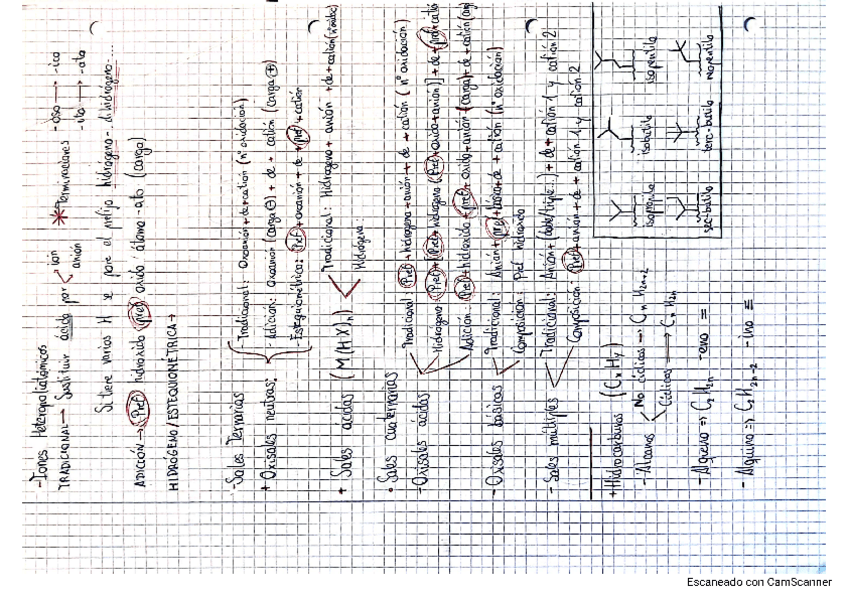 - Iones Heteropoliatómicos
TRADICIONAL → Sustituir ácido por ion anión * Terminaciones -oso → -ico
-ito → -ato
Si tiene varios H se pone el prefijo hidrogeno-, dihidrogeno-...
ADICCIÓN → (Pref) hidroxido (pref) oxido átomo-ato (carga)
HIDRÓGENO/ESTEQUIOMÉTRICA →
- Sales Ternarias
+ Oxisales neutras:
- Tradicional: Oxoanión + de + catión (nº oxidación)
- Adición: Oxoanión (carga ⊖) + de + catión (carga ⊕)
- Estequiométrica: (Pref) + oxoanión + de + (pref) + catión
+ Sales ácidas (M(HX)n)
Tradicional: Hidrógeno + anión + de + catión
Hidrógeno:
• Sales cuaternarias
- Oxisales ácidas
Tradicional: (Pref) + hidrogeno + anión + de + catión (nº oxidación)
Hidrógeno: (Pref) + (Pref) + hidrogeno (Pref) + oxido + anión] + de + (pref) + catión
Adición: (Pref) + hidroxido + (pref) + oxido + anión + (carga) + de + catión
- Oxisales básicas
Tradicional: Anión + (pref) + + de + catión (nº oxidación)
Composición: Pref
- Sales múltiples
Tradicional: Anión + (doble/triple...) + de + catión 1 y catión 2
Composición: (Pref) + anión + de + catión 1 y catión 2
+ Hidrocarburos (CxHy)
- Alcanos
No cíclicos → CnH2n+2
Cíclicos → CnH2n
- Alqueno => C2H2n -eno =
- Alquino => C2H2n-2 -ino ≡
isopropilo isobutilo isopentilo
sec-butilo terc-butilo neopentilo
Escaneado con CamScanner